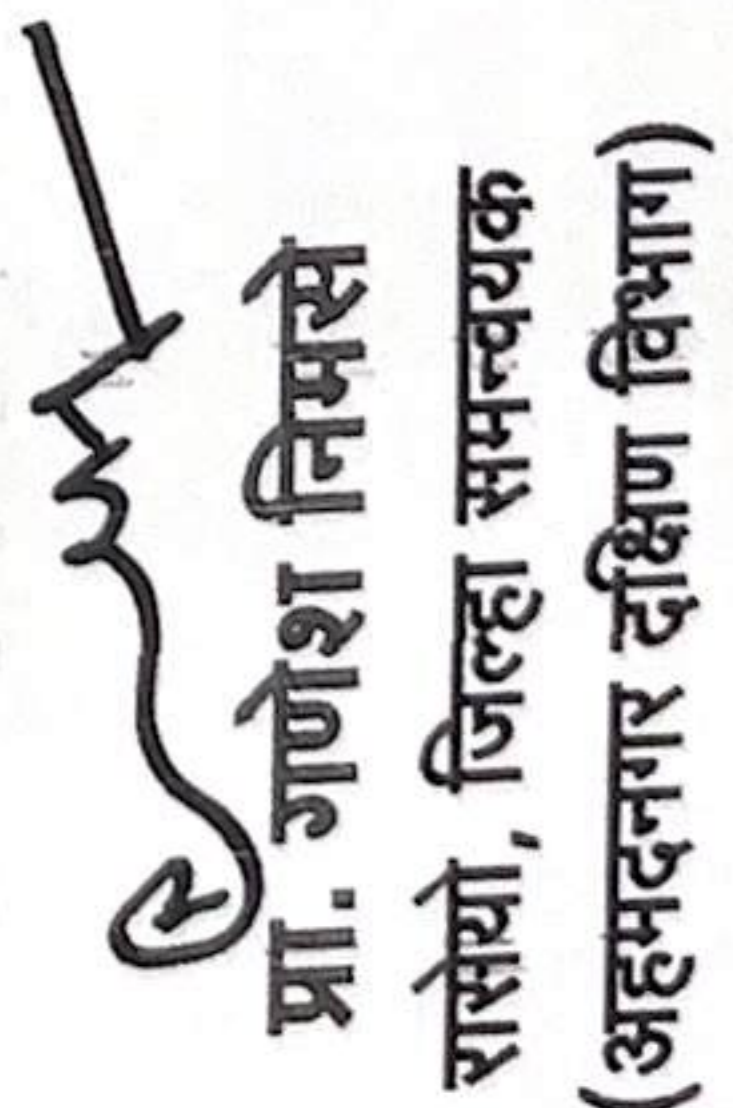 प्रा. गणेश निमसे
रासेयो, जिल्हा समन्वयक
(अहमदनगर दक्षिण विभाग)